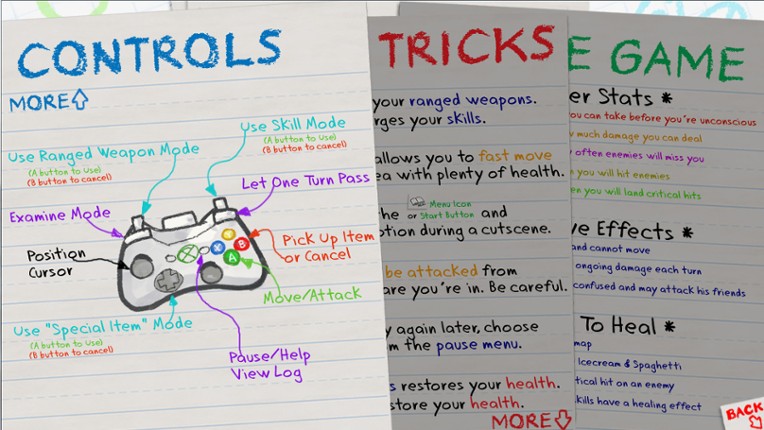 CONTROLS
MORE
Use Ranged Weapon Mode
(A button to use)
(B button to cancel)
Use Skill Mode
(A button to Use)
(B button to cancel)
Let One Turn Pass
Examine Mode
Position
Cursor
Y
X
B
A
Pick Up Item
or Cancel
Move/Attack
Use "Special Item" Mode
(A button to use)
(B button to cancel)
Pause/Help
View Log
TRICKS
your ranged weapons.
rges your skills.
allows you to fast move
ea with plenty of health.
he or Menu Icon
Start Button and
otion during a cutscene.
be attacked from
are you're in. Be careful.
y again later, choose
m the pause menu.
s restores your health.
store your health.
MORE
E GAME
er Stats *
ou can take before you're unconscious
much damage you can deal
often enemies will miss you
you will hit enemies
en you will land critical hits
ve Effects *
and cannot move
ongoing damage each turn
confused and may attack his friends
To Heal *
map
Icecream & Spaghetti
tical hit on an enemy
kills have a healing effect
BACK